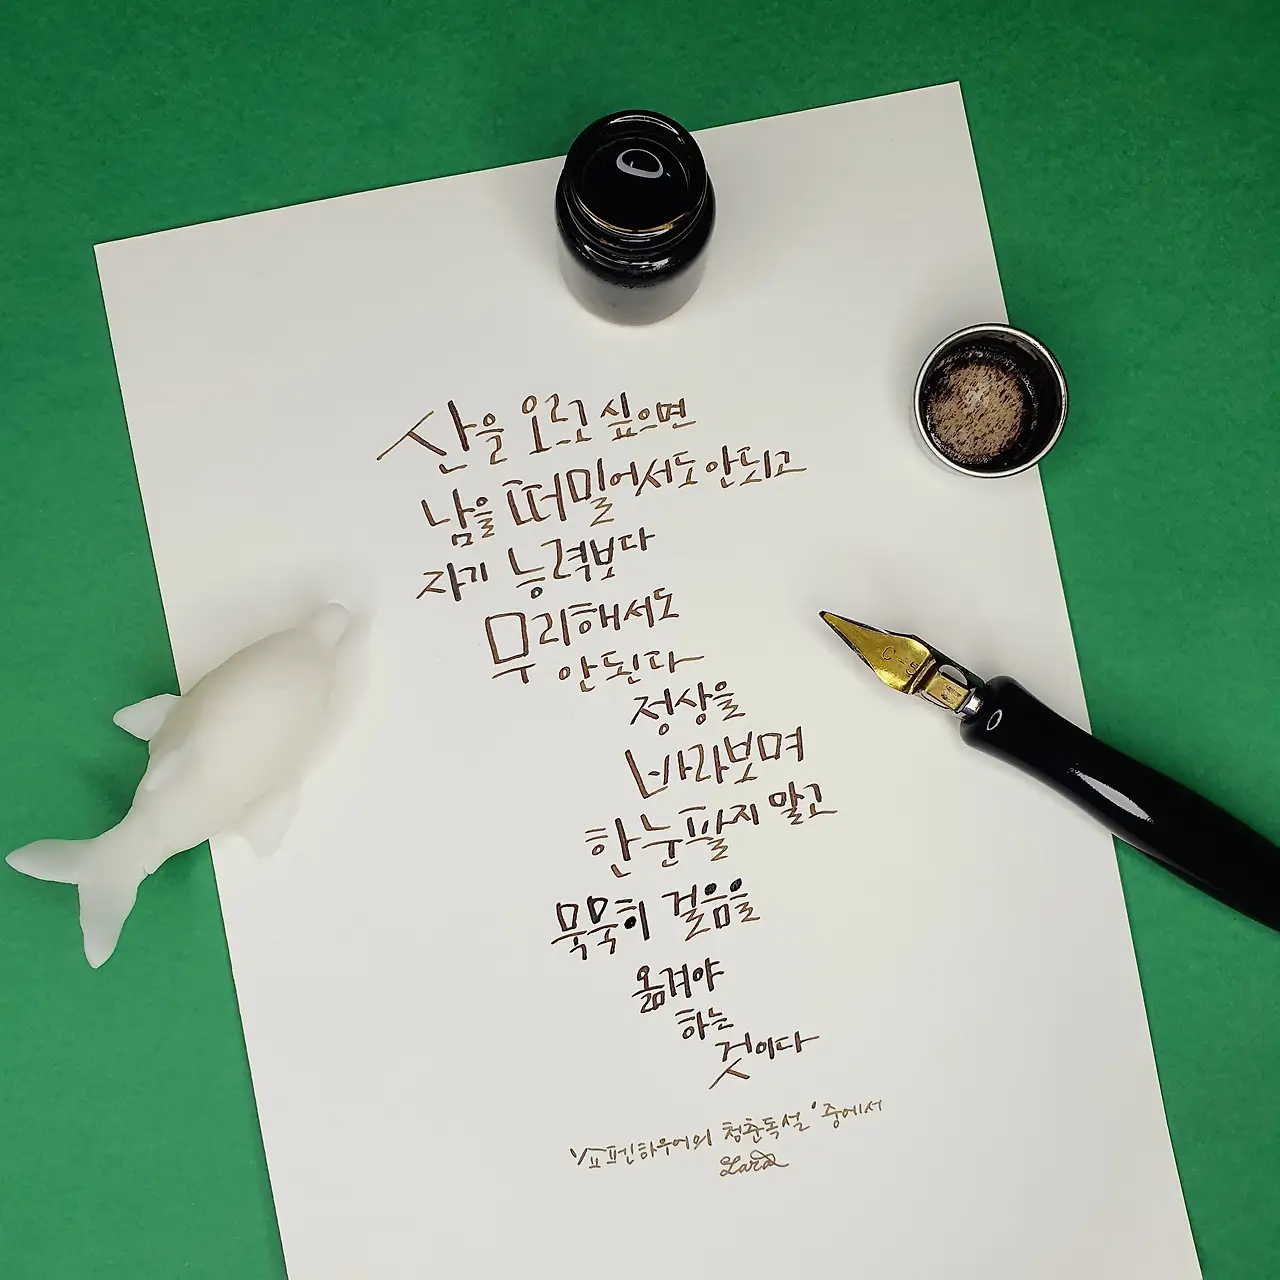 산을 오르고 싶으면
남을 떠밀어서도 안되고
자기 능력보다
무리해서도
안된다
정상을
바라보며
한눈팔지 말고
묵묵히 걸음을
옮겨야
하는
것이다
'쇼펜하우어의 청춘독설' 중에서
Lara
C-5